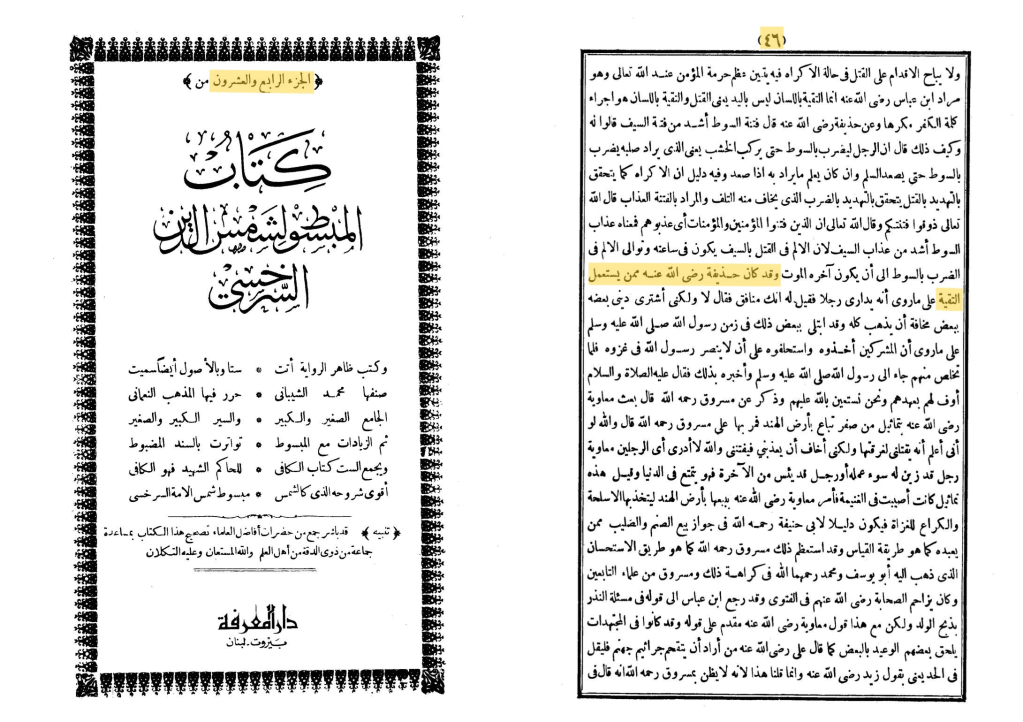 ﴿ الجزء الرابع والعشرون من ﴾
كتاب
المبسوط لشمس الدين
السرخسي
وكتب ظاهر الرواية أتت * ستا وبالأصول أيضا سميت
صنفها محمد الشيباني * حرر فيها المذهب النعماني
الجامع الصغير والكبير * والسير الكبير والصغير
ثم الزيادات مع المبسوط * تواترت بالسند المضبوط
ويجمع الست كتاب الكافي * للحاكم الشهيد فهو الكافي
أقوى شروحه الذي كالشمس * مبسوط شمس الامة السرخسي
﴿ تنبيه ﴾ قد باشر جمع من حضرات أفاضل العلماء تصحيح هذا الكتاب بمساعدة
جماعة من ذوى الدقة من أهل العلم والله المستعان وعليه التكلان
دار المعرفة
بيروت ـ لبنان
(٤٦)
ولا يباح الاقدام على القتل فى حالة الاكراه فيه يتبين عظم حرمة المؤمن عند الله تعالى وهو
مراد ابن عباس رضى الله عنه انما التقية باللسان ليس باليد يعنى القتل والتقية باللسان هو اجراء
كلمة الكفر مكرها وعن حذيفة رضى الله عنه قال فتنة السوط أشد من فتنة السيف قالوا له
وكيف ذلك قال ان الرجل ليضرب بالسوط حتى يركب الخشب يعنى الذى يراد صلبه يضرب
بالسوط حتى يصعد السلم وان كان يعلم ما يراد به اذا صعد وفيه دليل ان الاكراه كما يتحقق
بالتهديد بالقتل يتحقق بالتهديد بالضرب الذى يخاف منه التلف والمراد بالفتنة العذاب قال الله
تعالى ذوقوا فتنتكم وقال الله تعالى ان الذين فتنوا المؤمنين والمؤمنات أى عذبوهم فمعناه عذاب
السوط أشد من عذاب السيف لان الالم فى القتل بالسيف يكون فى ساعته وتوالى الالم فى
الضرب بالسوط الى أن يكون آخره الموت وقد كان حذيفة رضى الله عنه ممن يستعمل
التقية على ماروى أنه يدارى رجلا فقيل له انك منافق فقال لا ولكنى أشترى دينى بعضه
ببعض مخافة أن يذهب كله وقد ابتلى ببعض ذلك فى زمن رسول الله صلى الله عليه وسلم
على ماروى أن المشركين أخذوه واستحلفوه على أن لا ينصر رسول الله فى غزوه فلما
تخلص منهم جاء الى رسول الله صلى الله عليه وسلم وأخبره بذلك فقال عليه الصلاة والسلام
أوف لهم بعهدهم ونحن نستعين بالله عليهم وذكر عن مسروق رحمه الله قال بعث معاوية
رضى الله عنه بتماثيل من صفر تباع بأرض الهند فمر بها على مسروق رحمه الله قال والله لو
أنى أعلم أنه يقتلنى لغرقتها ولكنى أخاف أن يعذبنى فيفتننى والله لا أدرى أى الرجلين معاوية
رجل قد زين له سوء عمله أو رجل قد يئس من الآخرة فهو يتمتع فى الدنيا وقيل هذه
تماثيل كانت أصيبت فى الغنيمة فأمر معاوية رضى الله عنه ببيعها بأرض الهند ليتخذ بها الاسلحة
والكراع للغزاة فيكون دليلا لابى حنيفة رحمه الله فى جواز بيع الصنم والصليب ممن
يعبده كما هو طريقة القياس وقد استعظم ذلك مسروق رحمه الله كما هو طريق الاستحسان
الذى ذهب اليه أبو يوسف ومحمد رحمهما الله فى كراهة ذلك ومسروق من علماء التابعين
وكان يزاحم الصحابة رضى الله عنهم فى الفتوى وقد رجع ابن عباس الى قوله فى مسئلة النذر
بذبح الولد ولكن مع هذا قول معاوية رضى الله عنه مقدم على قوله وقد كانوا فى المجتهدات
يلحق بعضهم الوعيد بالبعض كما قال على رضى الله عنه من أراد أن يتقحم جراثيم جهنم فليقل
فى الجد يعنى بقول زيد رضى الله عنه وانما قلنا هذا لانه لا يظن بمسروق رحمه الله انه قال فى